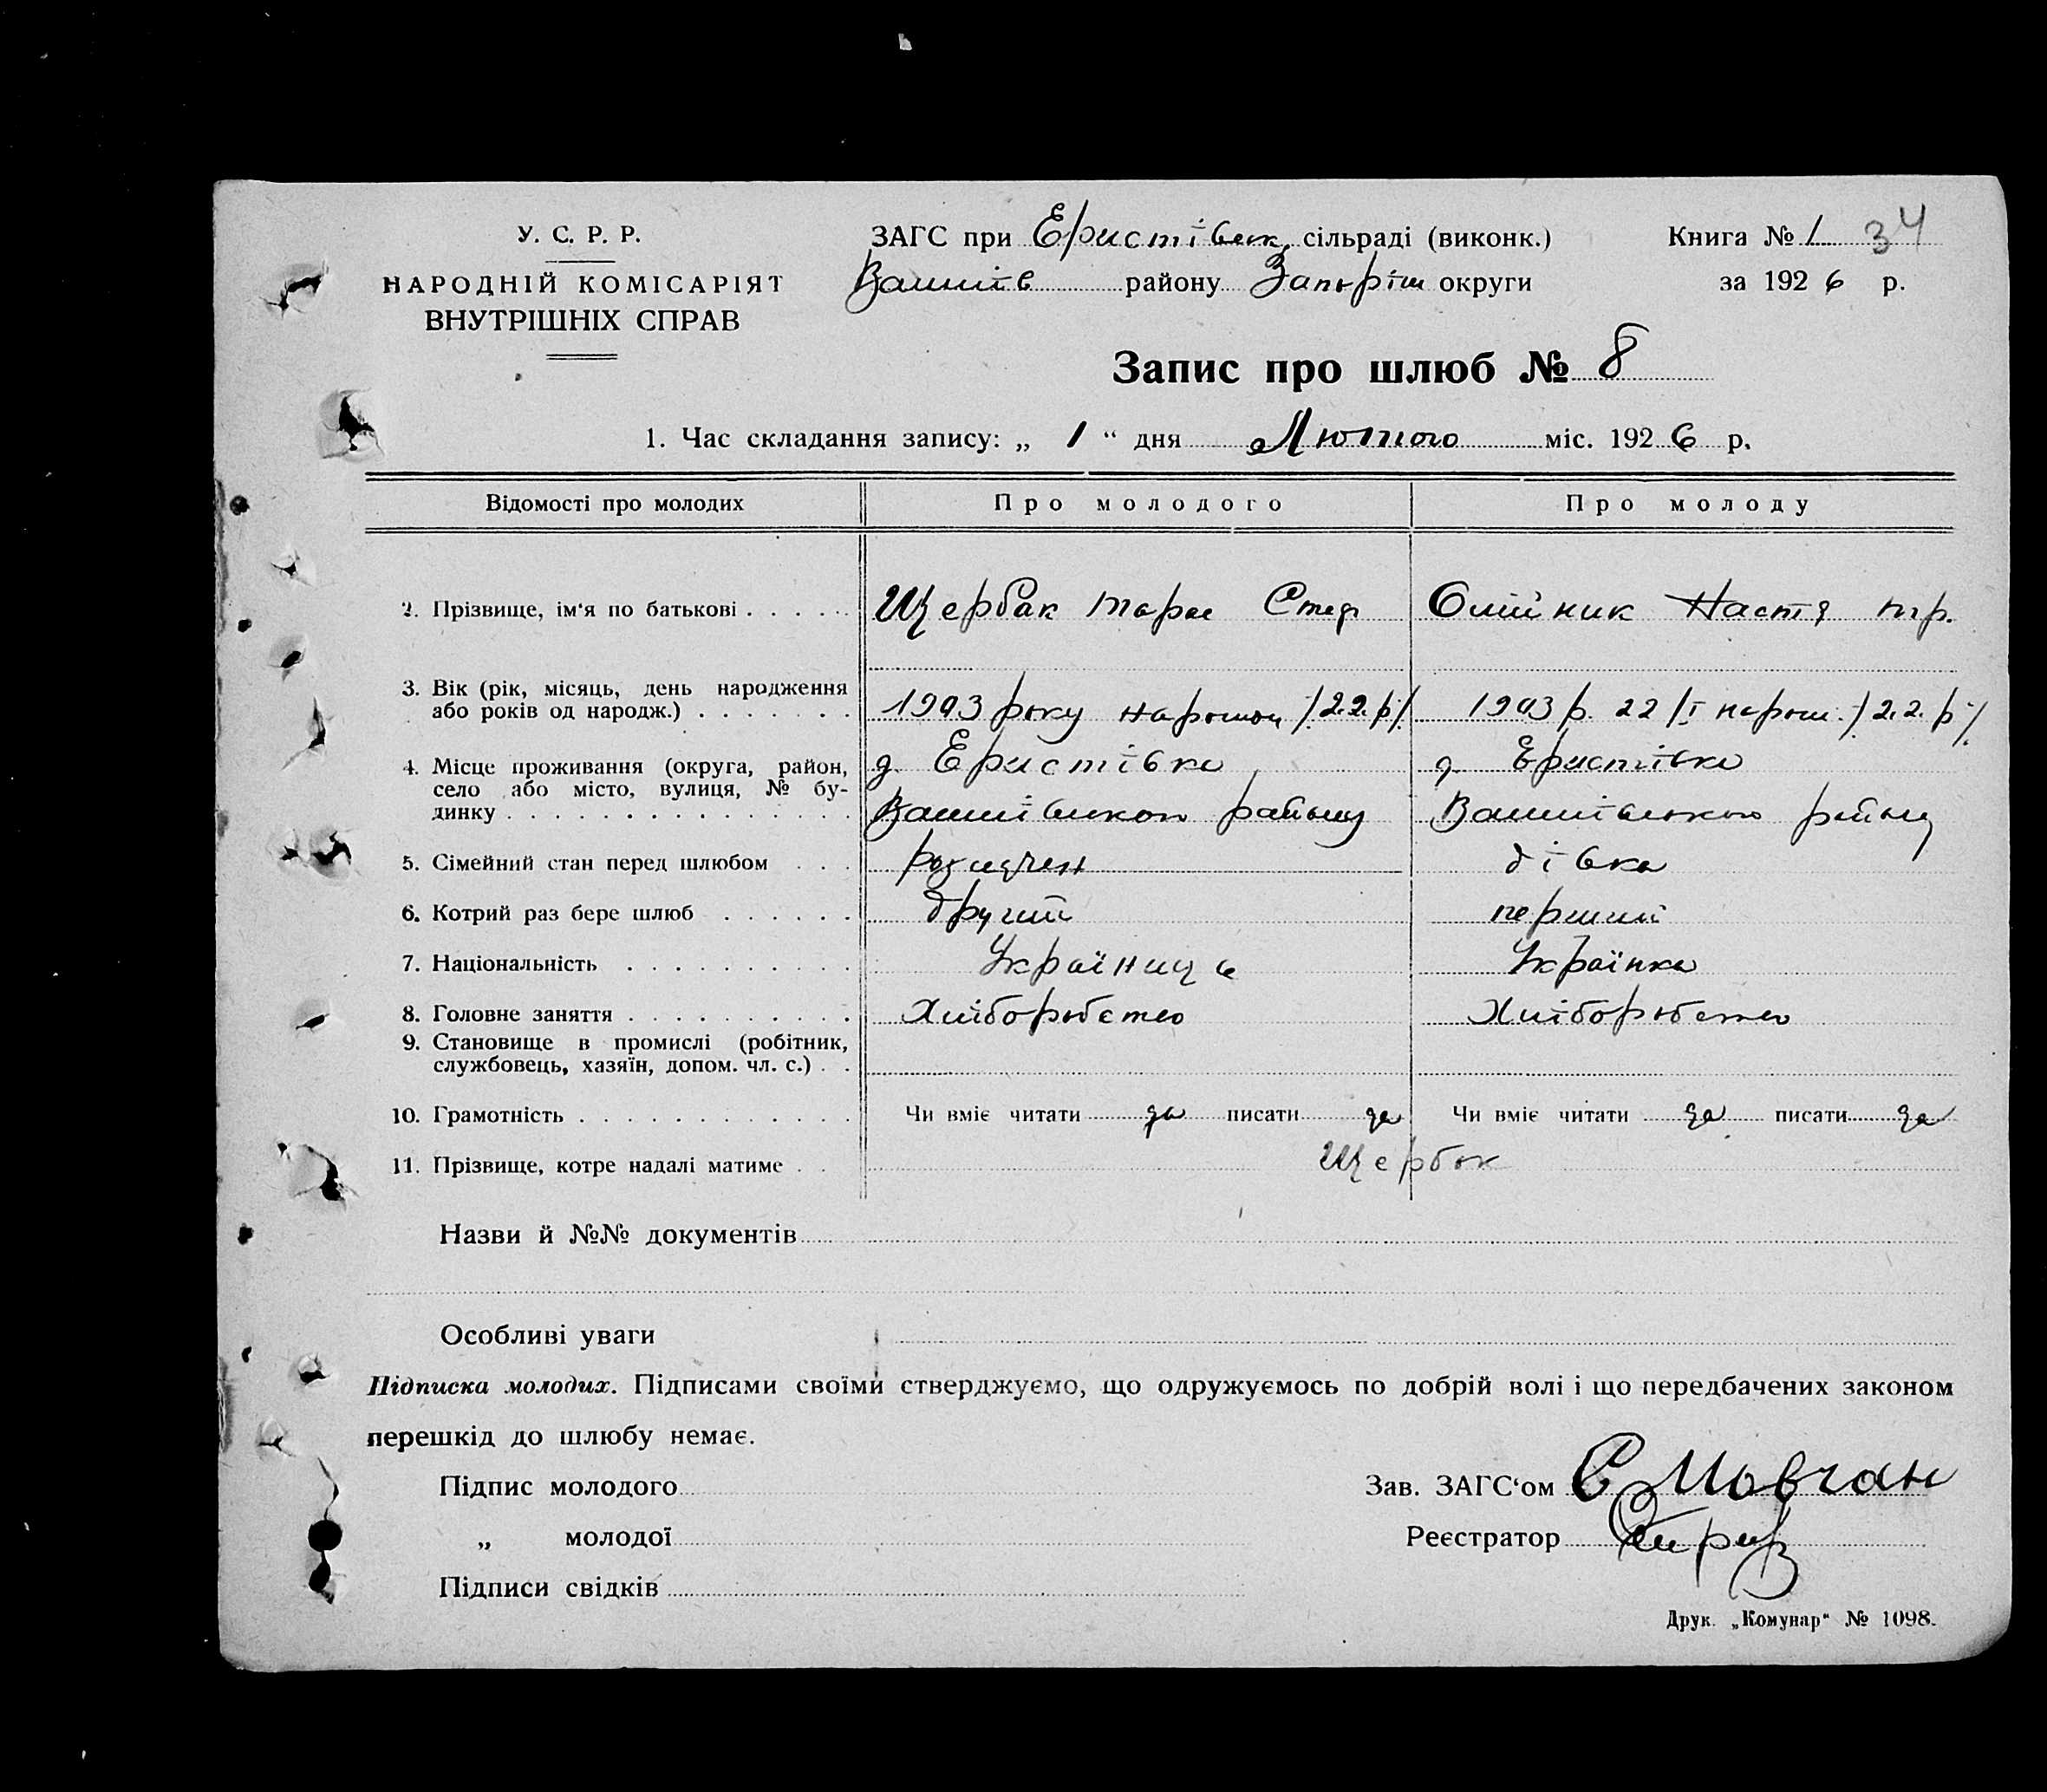 У. С. Р. Р.
НАРОДНІЙ КОМІСАРІЯТ
ВНУТРІШНІХ СПРАВ
ЗАГС при Еристівськ. сільраді (виконк.)
Книга № 1 34
Вашків району Запоріж округи
за 1926 р.
Запис про шлюб № 8
1. Час складання запису: „ 1 “ дня Лютого міс. 1926 р.
Відомості про молодих Про молодого Про молоду
2. Прізвище, ім‘я по батькові . . . . . Щербак Тарас Стеф Олійник Настя тр.
3. Вік (рік, місяць, день народження
або років од народж.) . . . . . . . 1903 року /22 р/ 1903 р. 22/I /22 р/
4. Місце проживання (округа, район,
село або місто, вулиця, № бу-
динку . . . . . . . . . . . . . . .
д. Еристівка д. Еристівка
району району
5. Сімейний стан перед шлюбом . . . дівка
6. Котрий раз бере шлюб . . . . . . другий перший
7. Національність . . . . . . . . . . Українець Українка
8. Головне заняття . . . . . . . . . . Хліборобство Хліборобство
9. Становище в промислі (робітник,
службовець, хазяїн, допом. чл. с.) . .
10. Грамотність . . . . . . . . . . . . Чи вміє читати да писати да Чи вміє читати да писати да
11. Прізвище, котре надалі матиме . . Щербак
Назви й №№ документів
Особливі уваги
Підписка молодих. Підписами своїми стверджуємо, що одружуємось по добрій волі і що передбачених законом
перешкід до шлюбу немає.
Підпис молодого
Зав. ЗАГС‘ом С Мовчан
„ молодої
Реєстратор
Підписи свідків
Друк. „Комунар“ № 1098.